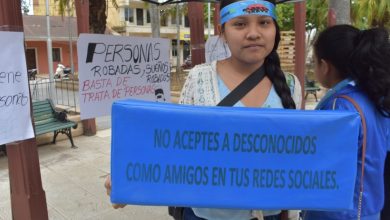 PERSONAS
ROBADAS, SUEÑOS
ROBADOS
BASTA DE
TRATA DE PERSONAS
NO ACEPTES A DESCONOCIDOS
COMO AMIGOS EN TUS REDES SOCIALES.